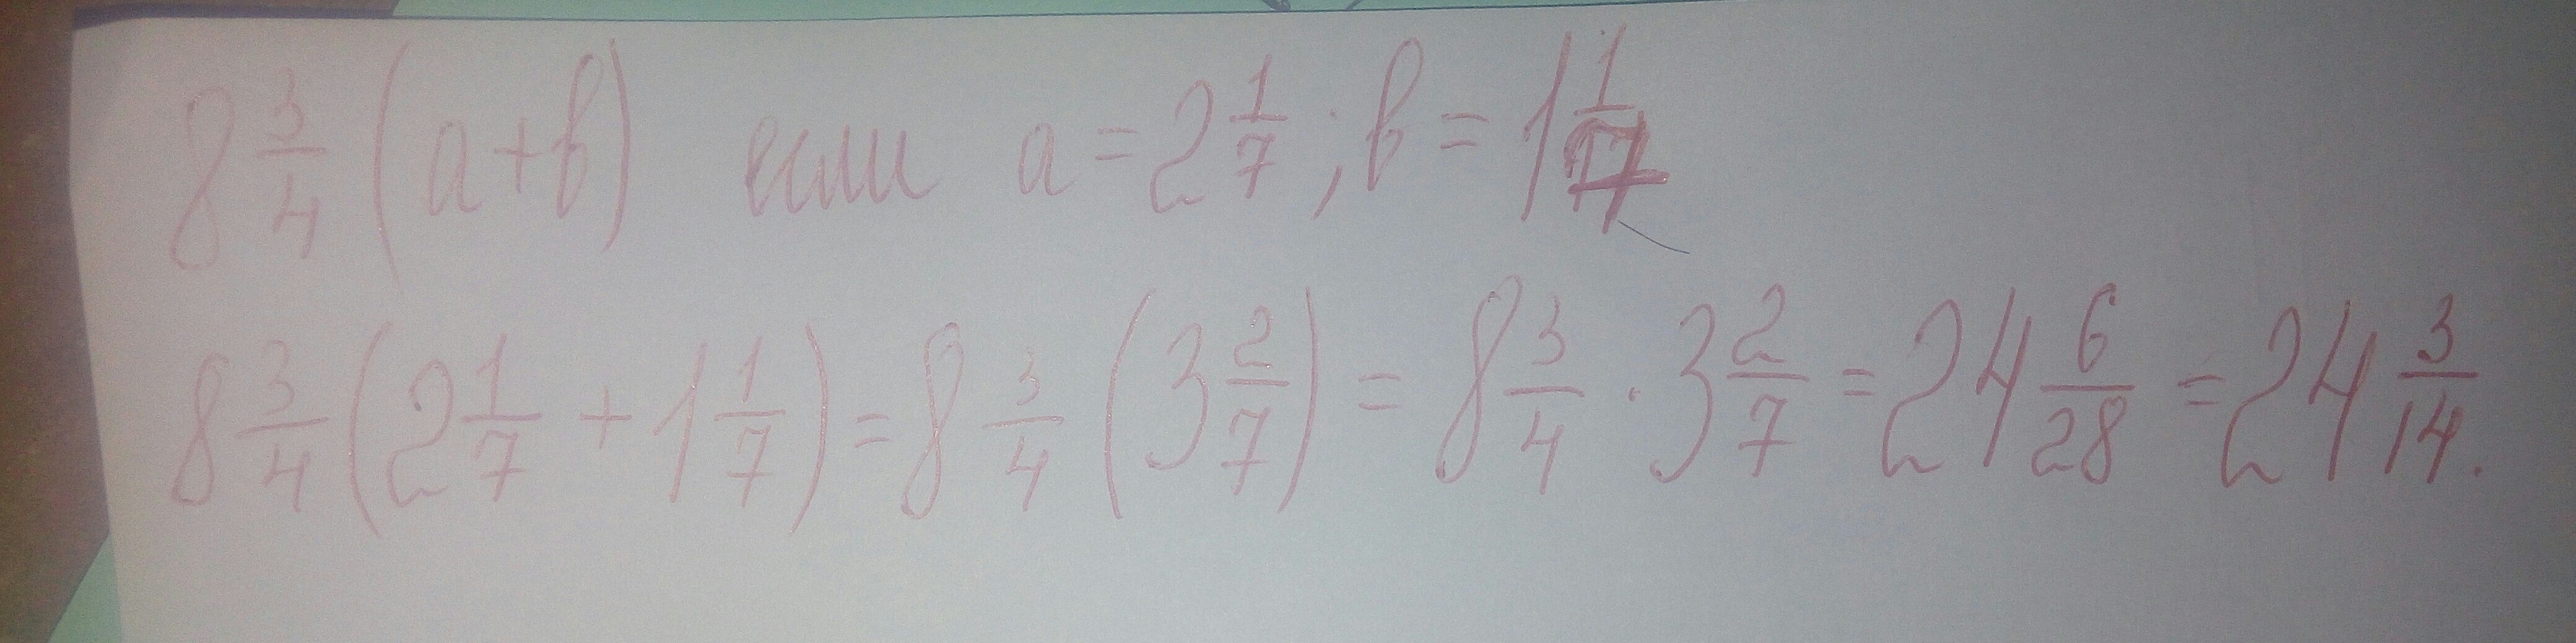 8 3/4 (a+b) если a = 2 1/7 ; b = 1 1/7
8 3/4 (2 1/7 + 1 1/7) = 8 3/4 (3 2/7) = 8 3/4 · 3 2/7 = 24 6/28 = 24 3/14.